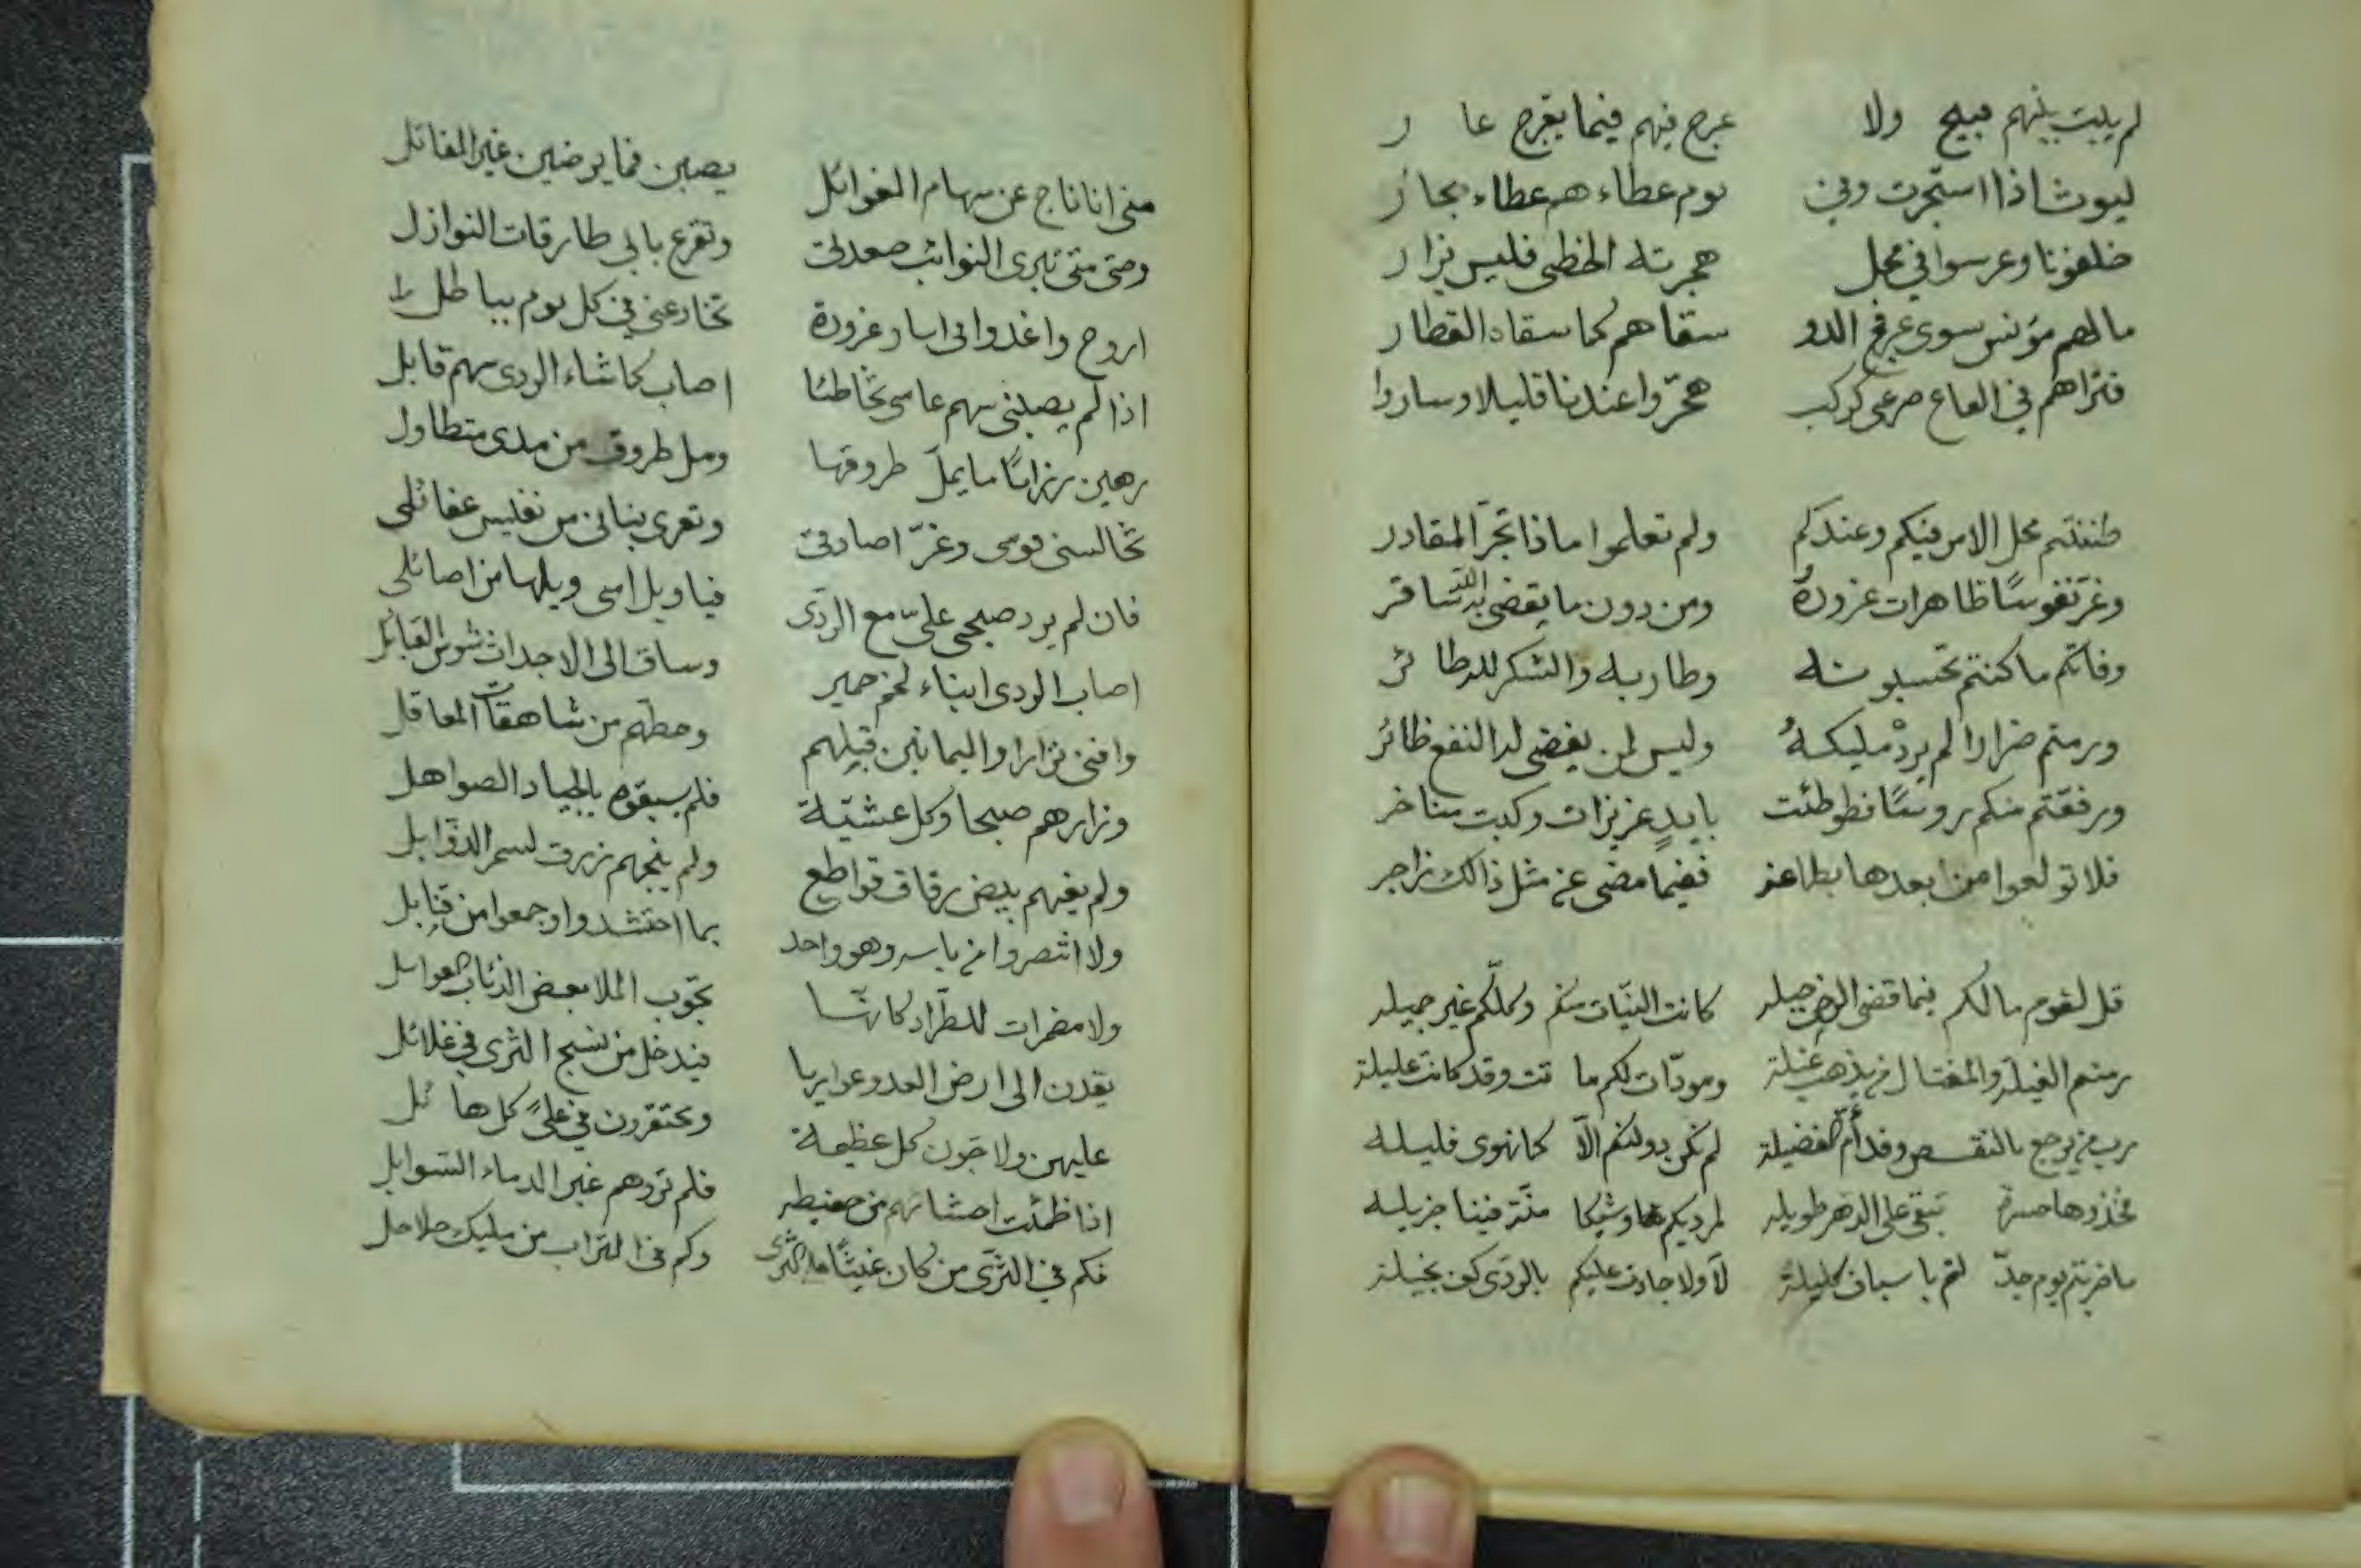 لم يبت بينهم قبيح ولا عرج فيهم فيما يعرج عار
ليوث اذا استجرت وفي يوم عطاء هم عطاء بحار
خلفونا وعرسوا في محل هجرته الخطى فليس يزار
مالهم مؤنس سوى عرفج الدو سقاهم كما سقاه القطار
فتراهم في القاع صرعى كركب هجّروا عندنا قليلا وساروا
ظننتم محل الامر فيكم وعندكم ولم تعلموا ماذا تجرّ المقادر
وغر نفوسًا ظاهرات غرورة ومن دون ما يقضي به الله ساتر
وفاتكم ما كنتم تحسبونه وطار به والشكر لله طائر
ورمتم ضرارا لم يردْ مليكهُ وليس لمن يقضي له النفع ضائر
ورفعتم منكم روسًا فطوطئت بايدٍ عزيزات وكبت مناخر
فلا تولعوا من بعدها بطماعة ففيما مضى عن مثل ذالك زاجر
قل لقوم مالكم فيما قضى الرحمن حيله كانت النيّات منكم وكلكّم غير جميله
رمتم الغيلة والمغتال من يذهب غيلة ومودّات لكم ماتت وقد كانت عليلة
رب من يرجع بالنقص وقد أمّ الفضيلة لم تكن دولتكم الّا كما نهوى قليله
فخذوها حسرة تبقى على الدهر طويله لمرديكم وشيكا منّة فينا جزيله
ما ضربتم يوم جدّ لكم باسياف كليلة لا ولا جادت عليكم بالردى كف بخيلة
متى انا ناج عن سهام الغوائل يصبن فما يرضين غير المقاتل
وحتى متى تبرى النوائب صعدتي وتقرع بابي طارقات النوازل
اروح واغدوا في اسار غرورة تخادعني في كل يوم بباطل
اذا لم يصبني سهم عامي مخاطئا اصاب كما شاء الردى سهم قابل
رهين رزايا ما يملّ طروقها ومل طروق من مدى متطاول
تخالسني قومي وغرّ اصادقي وتعري بناني من نفيس عقائلي
فان لم يرد صبحي عليّ مع الردى فيا ويل امي ويلها من اصائلي
اصاب الردى ابناء لخم حمير وساق الى الاجداث شوس القبائل
وافنى نزارا واليمانين قبلهم وحطهم من شاهقات المعاقل
وزارهم صبحا وكل عشيّة فلم يسبقوه بالجياد الصواهل
ولم يغنهم بيض رقاق قواطع ولم ينجهم زرق لسمر الذوابل
ولا انتصروا من باسه وهو واحد بما احتشدوا وجمعوا من قنابل
ولا مضمرات للطراد كانهّا تجوب الملا بعض الذئاب العواسل
يقدن الى ارض العدو عواريا فيدخل من نسج الثرى في غلائل
عليهن ولاجون كل عظيمة ومحتقرون في علىً كل هائل
اذا ظمئت احشائهم من حفيظه فلم تروهم غير الدماء السوابل
فكم في الثرى من كان غيثًا على الثرى وكم في التراب من مليك حلاحل